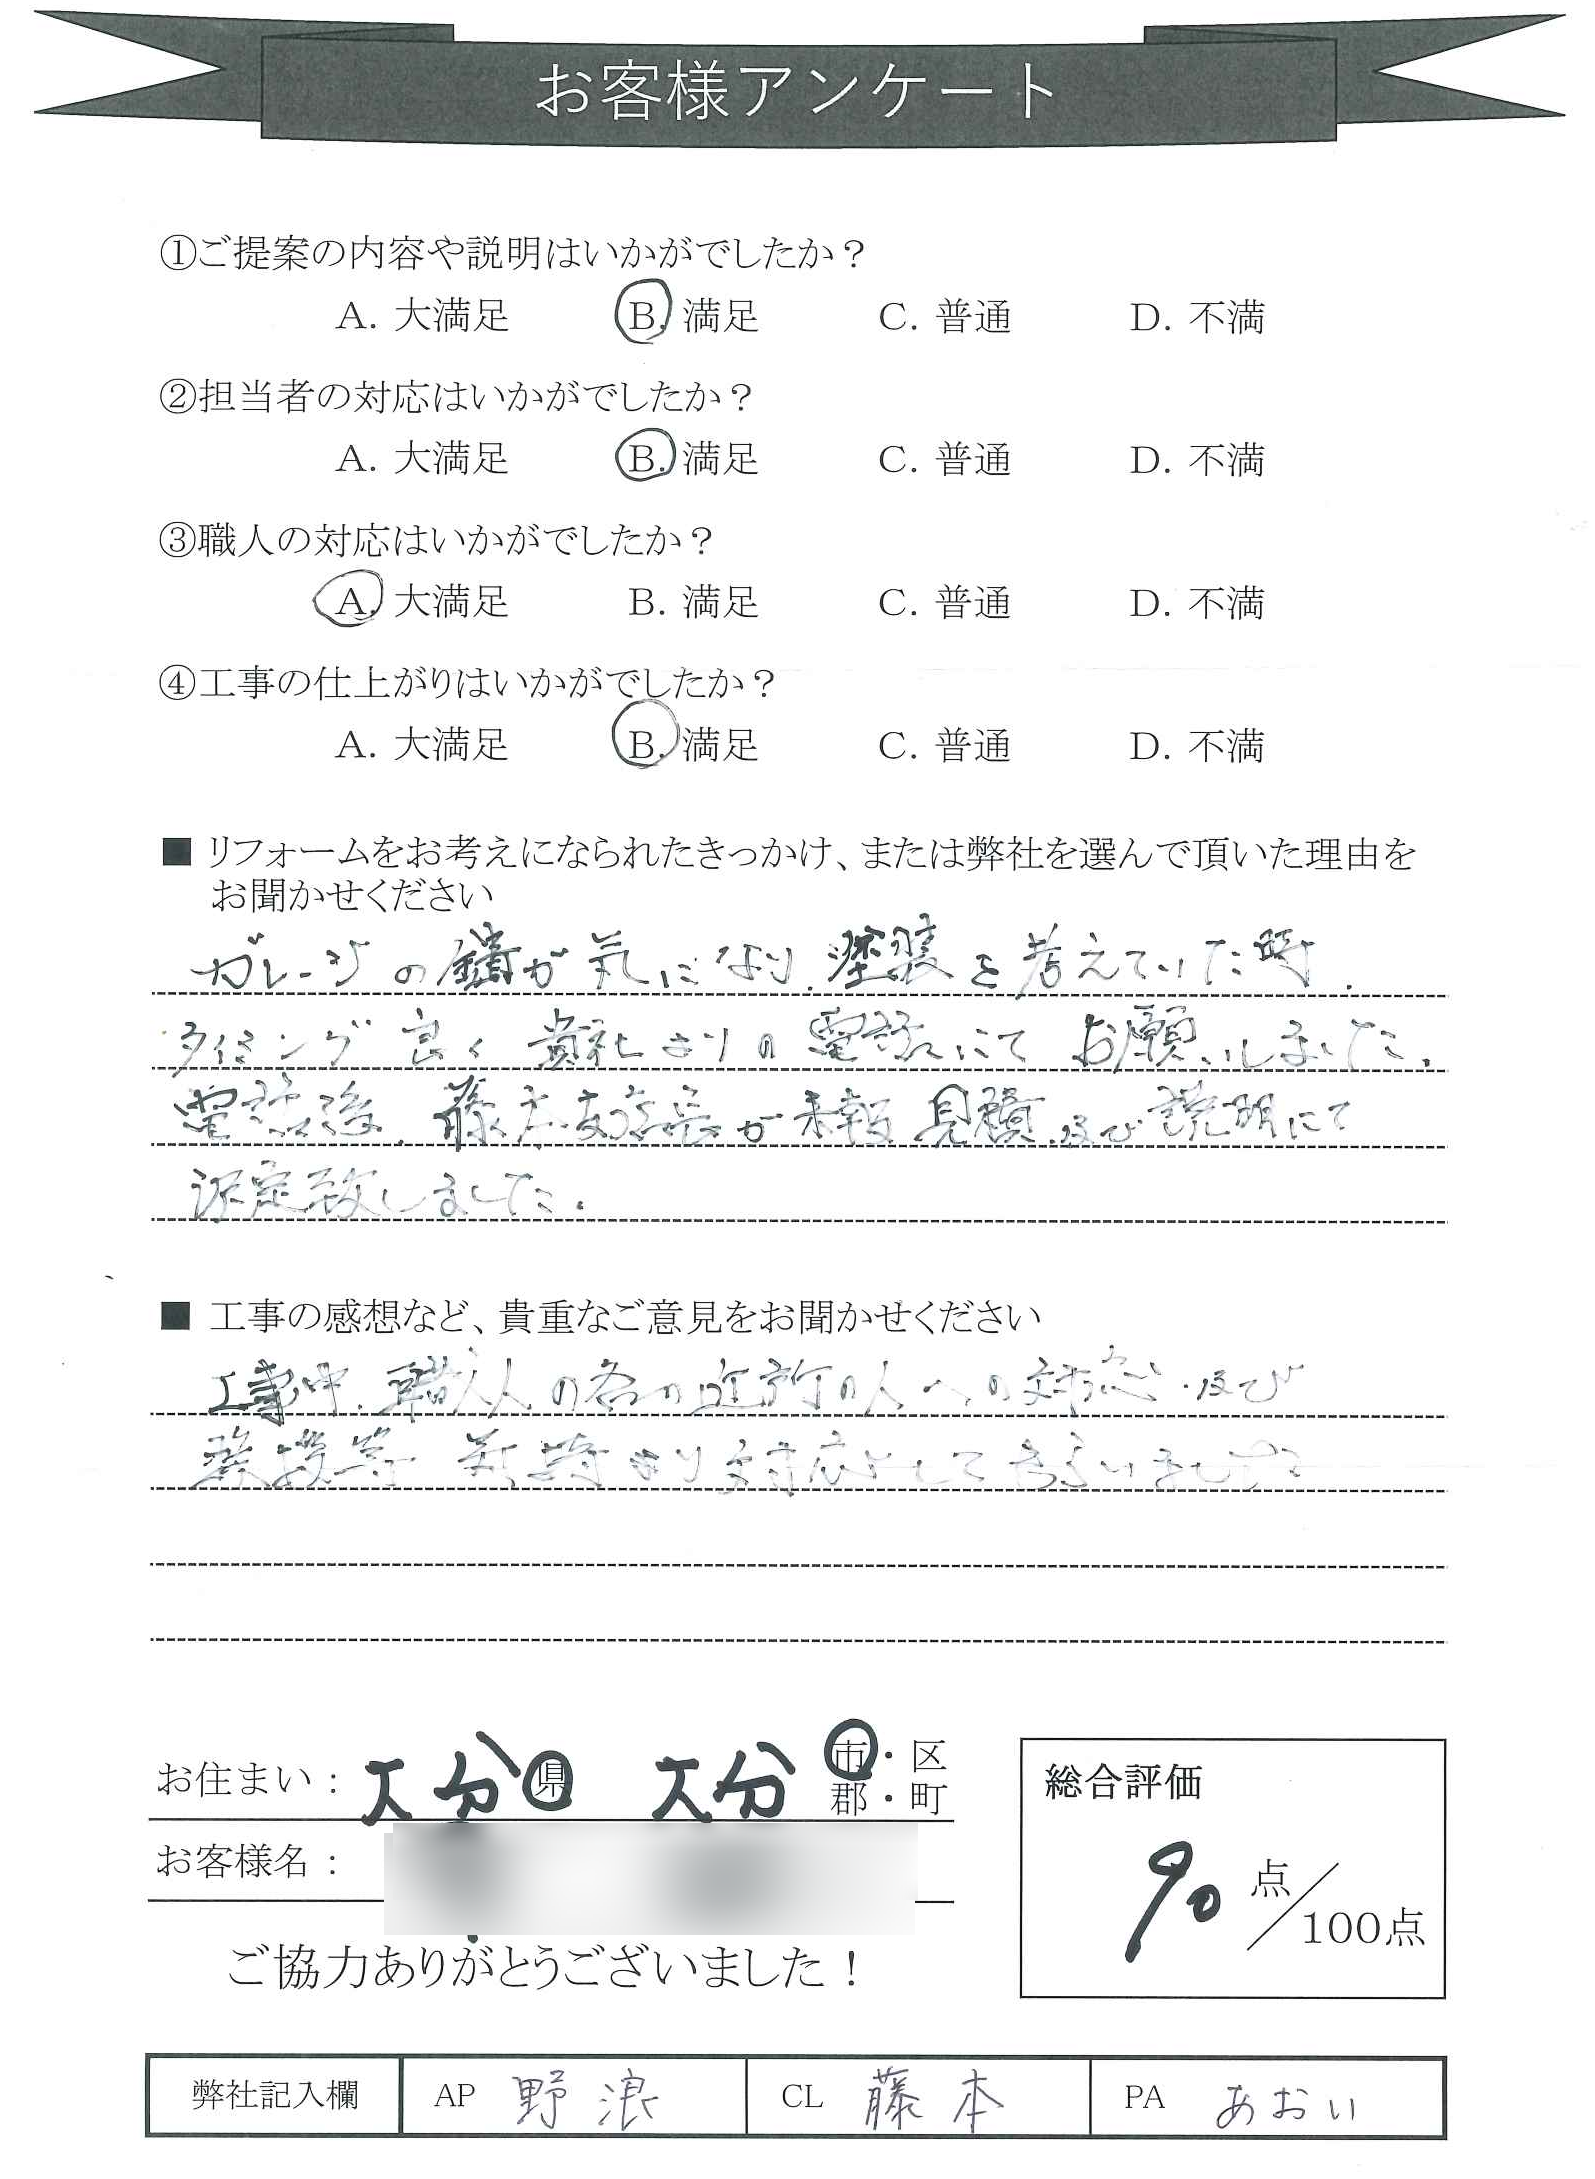 お客様アンケート
①ご提案の内容や説明はいかがでしたか？
A. 大満足 B. 満足 C. 普通 D. 不満
②担当者の対応はいかがでしたか？
A. 大満足 B. 満足 C. 普通 D. 不満
③職人の対応はいかがでしたか？
A. 大満足 B. 満足 C. 普通 D. 不満
④工事の仕上がりはいかがでしたか？
A. 大満足 B. 満足 C. 普通 D. 不満
■ リフォームをお考えになられたきっかけ、または弊社を選んで頂いた理由を
お聞かせください
ガレージの錆が気になり、塗装を考えていた時、
タイミング良く貴社よりの電話にてお願いしました。
電話後、藤本支店長が来報 見積、及び説明にて
決定致しました。
■ 工事の感想など、貴重なご意見をお聞かせください
工事中、職人の各々近所の人への対応、及び
挨拶等 対応して
お住まい： 大分 県 大分 市・区
郡・町
お客様名：
総合評価
90 点／100点
ご協力ありがとうございました！
弊社記入欄 AP 野浪 CL 藤本 PA あおい